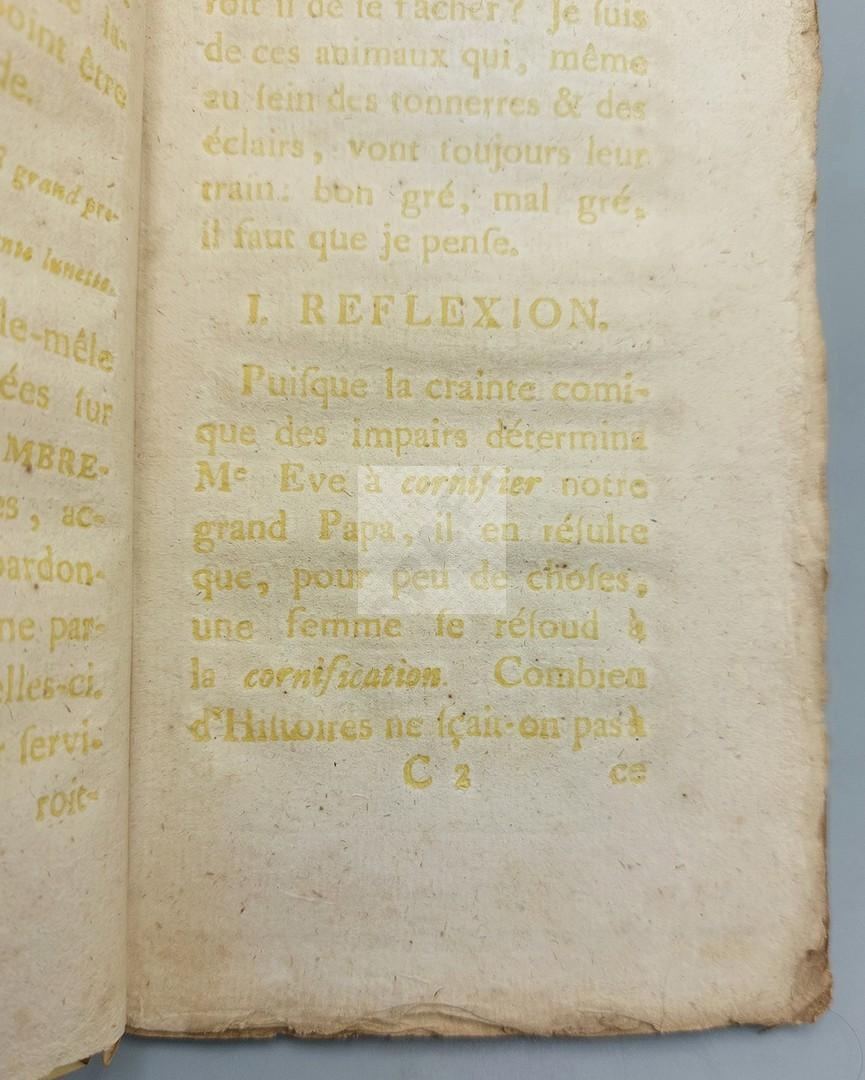 la-
point être
de.
grand pre-
lunettes.
le-mêle
ées ſur
MBRE-
es, ac-
pardon-
ne par-
elles-ci.
ſervi-
roit-
roit il de ſe fâcher? Je ſuis
de ces animaux qui, même
au ſein des tonnerres & des
éclairs, vont toujours leur
train: bon gré, mal gré,
il faut que je penſe.
I. REFLEXION.
Puiſque la crainte comi-
que des impairs détermina
Me Eve à cornifier notre
grand Papa, il en réſulte
que, pour peu de choſes,
une femme ſe réſoud à
la cornification. Combien
d'Hiſtoires ne ſçait-on pas à
C 2 ce